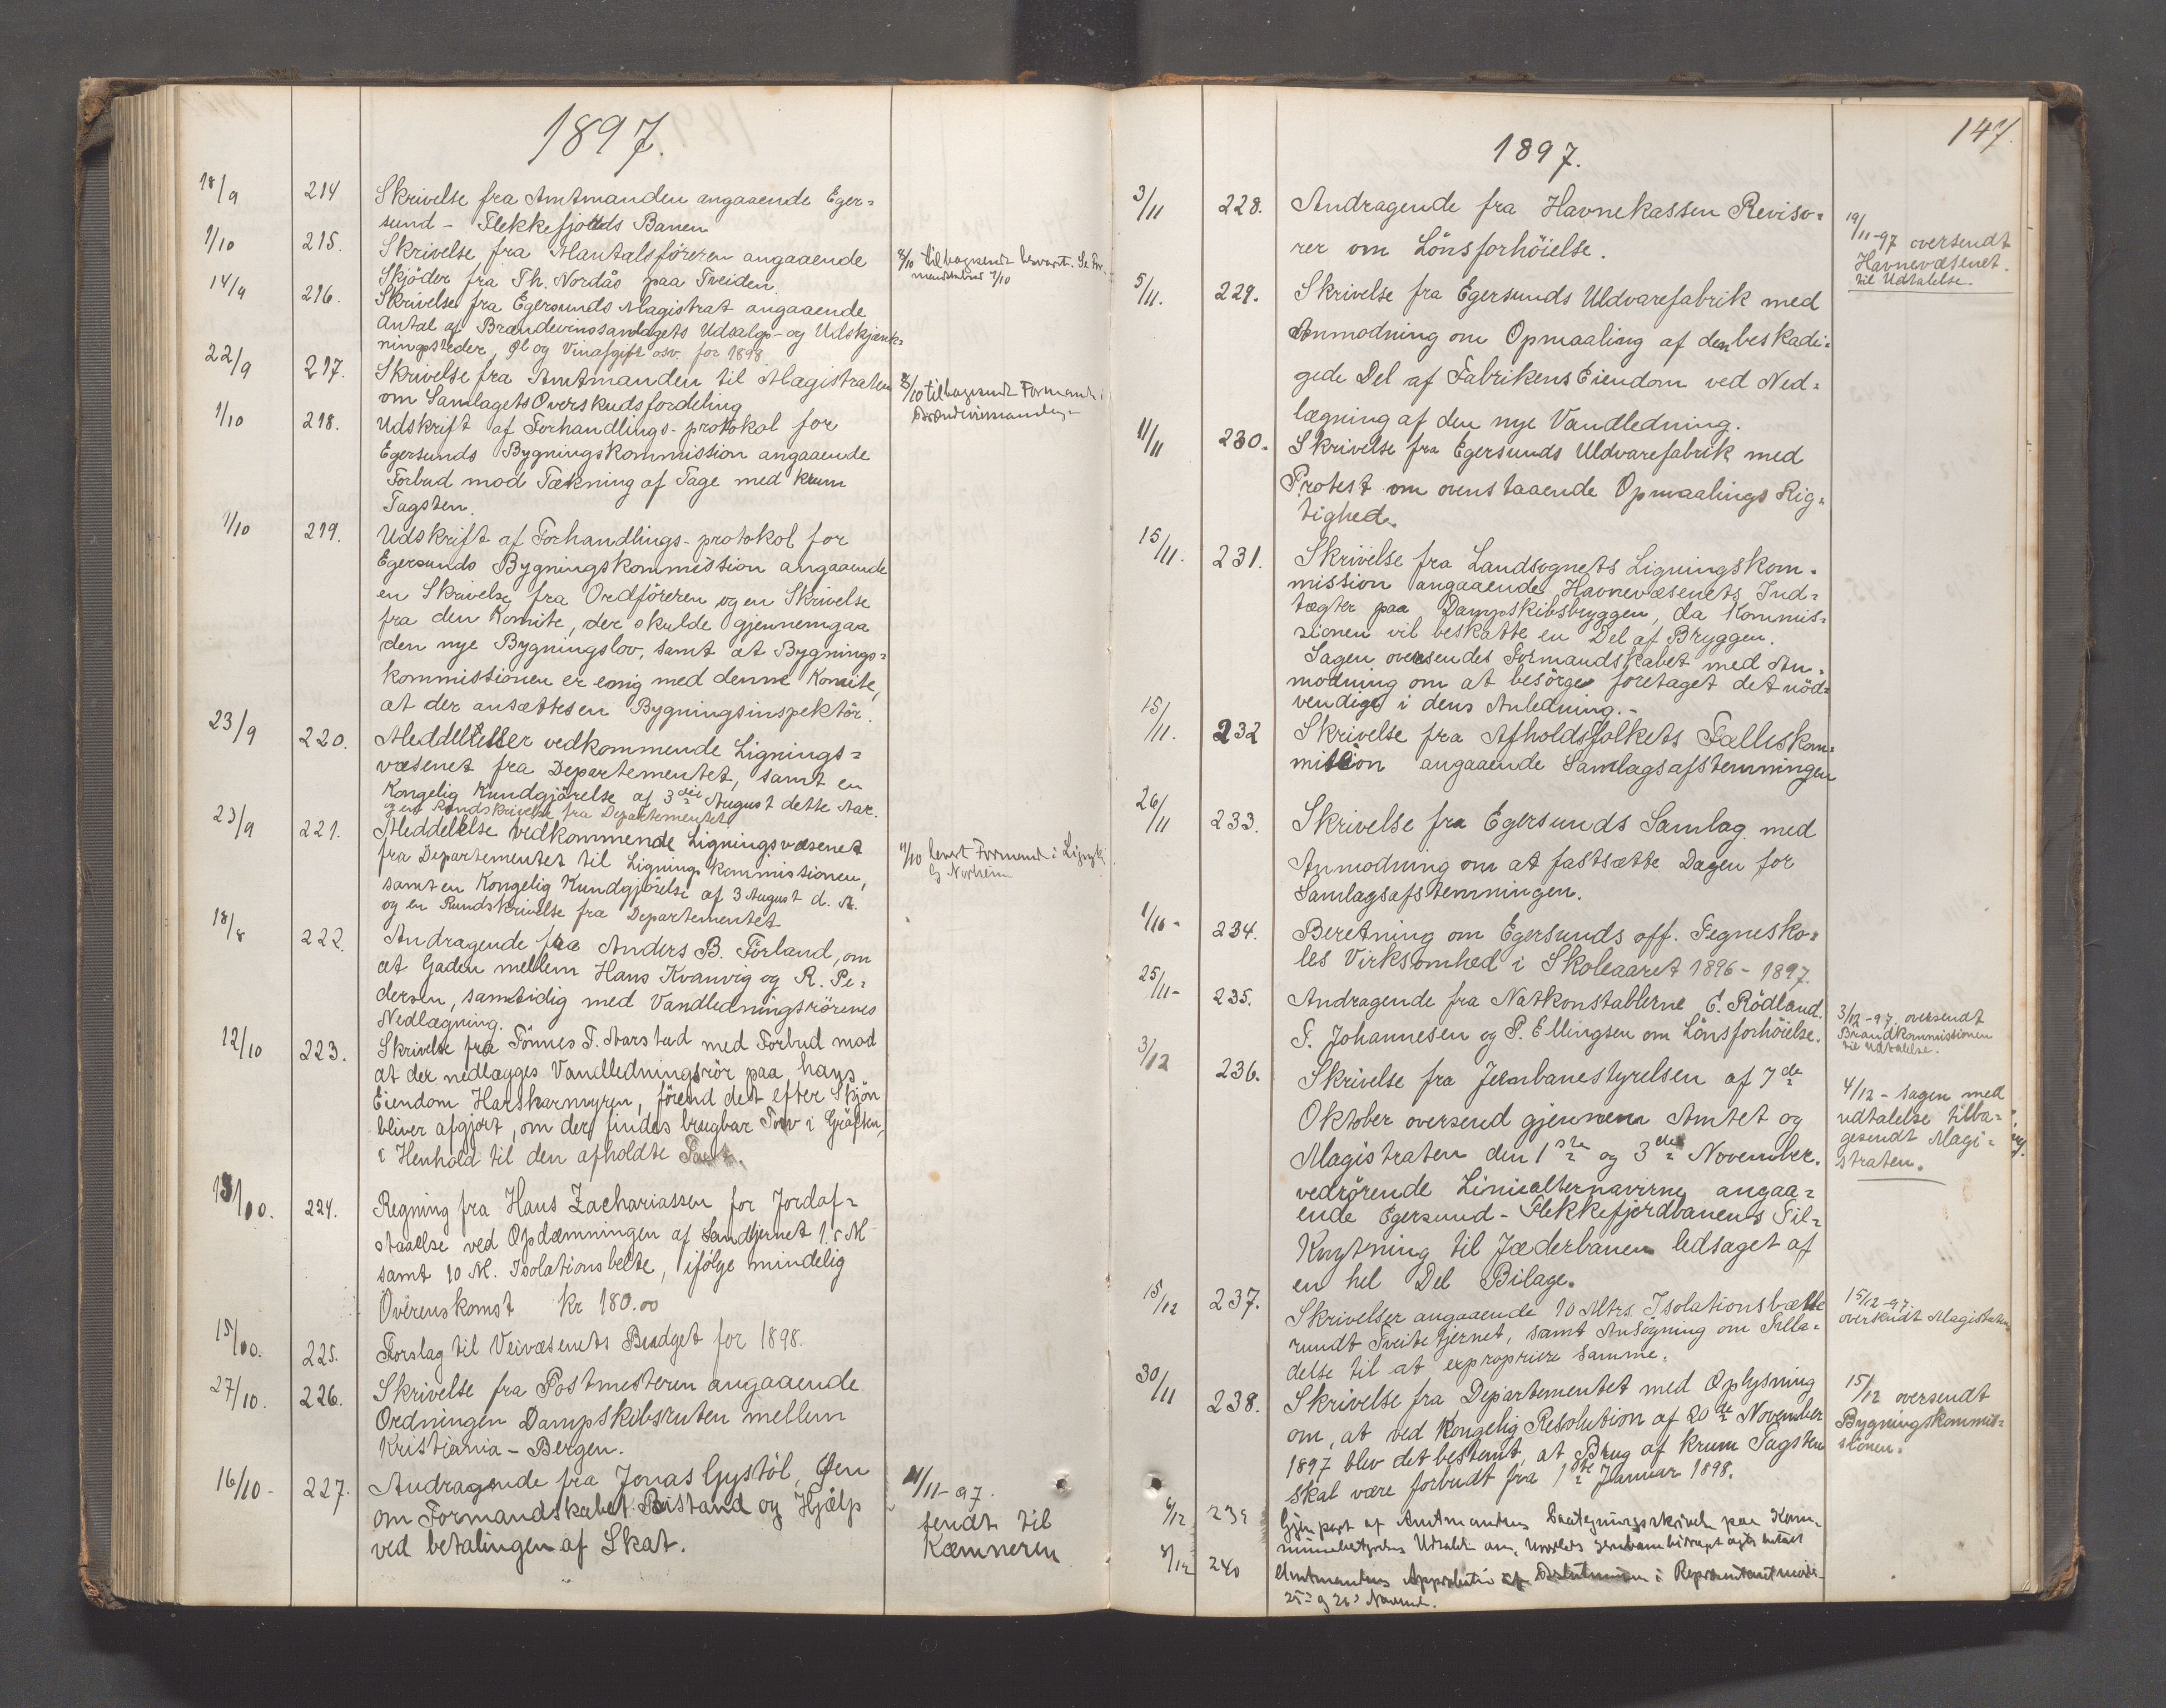 1897.
18/9 214 Skrivelse fra Amtmanden angaaende Eger=
sund - Flekkefjords Banen
1/10 215. Skrivelse fra Mantalsföreren angaaende
Skjöder fra Th. Nordås paa Tveiden.
8/10 tilbagesendt besvart. Se For-
mandskabet 7/10
14/9 216. Skrivelse fra Egersunds Magistrat angaaende
Antal af Brændevinssamlagets Udsalgs- og Udskjænk=
ningssteder, Øl og Vinafgift osv. for 1898
22/9 217. Skrivelse fra Amtmanden til Magistraten
om Samlagets Overskudsfordeling
8/10 tilbagesendt Formand i
1/10 218. Udskrift af Forhandlings-protokol for
Egersunds Bygningskommission angaaende
Forbud mod Tækning af Tage med Krum
Tagsten.
1/10 219. Udskrift af Forhandlings-protokol for
Egersunds Bygningskommission angaaende
en Skrivelse fra Ordföreren og en Skrivelse
fra den Komite, der skulde gjennemgaa
den nye Bygningslov, samt at Bygnings=
kommissionen er enig med denne Komite,
at der ansættes en Bygningsinspektör.
23/9 220. Meddelelser vedkommende Lignings=
væsenet fra Departementet, samt en
Kongelig Kundgjörelse af 3die August dette Aar.
og en Rundskrivelse fra Departementet
23/9 221. Meddelelse vedkommende Ligningsvæsenet
fra Departementet til Ligningskommissionen,
samt en Kongelig Kundgjörelse af 3 August d. A.
og en Rundskrivelse fra Departementet
11/10 levert Formand i
G Norheim
18/8 222. Andragende fra Anders B. Förland, om
at Gaden mellem Hans Kvanvig og R. Pe=
dersen, samtidig med Vandledningsrörenes
Nedlægning.
12/10 223. Skrivelse fra Tönnes T. Aarstad med Forbud mod
at der nedlægges Vandledningsrör paa hans
Eiendom Harskarmyren, förend det efter Skjön
bliver afgjort, om der findes brugbar Torv i Gröften,
i Henhold til den afholdte
13/10. 224. Regning fra Hans Zachariassen for Jordaf=
staaelse ved Opdæmningen af Sandtjernet 1.5 M
samt 10 M. Isolationsbelte, ifölge mindelig
Overenskomst Kr 180.00
15/10. 225. Forslag til Veivæsenets Budget for 1898.
27/10. 226. Skrivelse fra Postmesteren angaaende
Ordningen Dampskibsruten mellem
Kristiania - Bergen.
16/10- 227. Andragende fra Jonas Gystöl, Øen
om Formandskabet Bistand og Hjælp
ved betalingen af Skat.
4/11-97.
sendt til
Kæmneren
147.
1897.
3/11 228. Andragende fra Havnekassen Reviso=
rer om Lönsforhöielse.
19/11-97 oversendt
Havnevæsenet.
til Udtalelse.
5/11. 229. Skrivelse fra Egersunds Uldvarefabrik med
Anmodning om Opmaaling af den beskadi=
gede Del af Fabrikens Eiendom ved Ned=
lægning af den nye Vandledning.
11/11 230. Skrivelse fra Egersunds Uldvarefabrik med
Protest om ovenstaaende Opmaalings Rig=
tighed.
15/11. 231. Skrivelse fra Landsognets Ligningskom=
mission angaaende Havnevæsenets Ind=
tægter paa Dampskibsbryggen, da Kommis=
sionen vil beskatte en Del af Bryggen.
Sagen oversendes Formandskabet med An=
modning om at besörge foretaget det nöd=
vendige i dens Anledning.-
15/11. 232 Skrivelse fra Afholdsfolkets Fælleskom=
mision angaaende Samlagsafstemningen
26/11 233. Skrivelse fra Egersunds Samlag med
Anmodning om at fastsætte Dagen for
Samlagsafstemningen.
1/10- 234. Beretning om Egersunds off. Tegnesko=
les Virksomhed i Skoleaaret 1896-1897.
25/11- 235. Andragende fra Natkonstablerne E. Rödland.
T. Johannesen og P. Ellingsen om Lönsforhöielse.
3/12-97. oversendt
Brandkommissionen
til Udtalelse.
3/12 236. Skrivelse fra Jernbanestyrelsen af 7de
Oktober oversend gjennem Amtet og
Magistraten den 1ste og 3die November.
vedrörende Liniealternativerne angaa=
ende Egersund-Flekkefjordbanens Til=
Knytning til Jæderbanen ledsaget af
en hel Del Bilage.
4/12 - Sagen med
udtalelse tilba=
gesendt Magi=
straten.
15/12 237. Skrivelser angaaende 10 Mtrs. Isolationsbælte
rundt Tveitetjernet, samt Ansögning om Tilla=
delse til at expropriere samme.
15/12-97.
oversendt Magistraten
30/11 238. Skrivelse fra Departementet med Oplysning
om, at ved Kongelig Resolution af 20de November
1897 blev det bestemt, at Brug af Krum Tagsten
skal være forbudt fra 1ste Januar 1898.
15/12 oversendt
Bygningskommis=
sionen.
6/12 239 Gjenpart af Amtmandens Paategningsskrivelse paa Kom-
munebestyrelsens Udtalelse
8/12 240 Amtmandens Approbation af Beslutninger i Repræsentantmöde
25de og 26de Novemb.